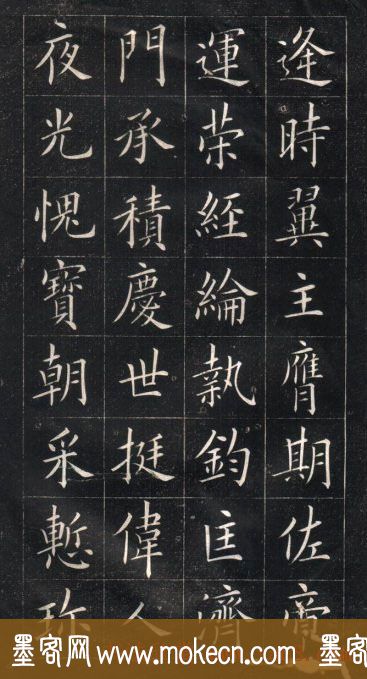 逢時翼主膺期佐帝
運荣經綸執鈞匡濟
門承積慶世挺偉人
夜光愧寶朝采慙珎
墨客网 www.mokecn.com 墨客网